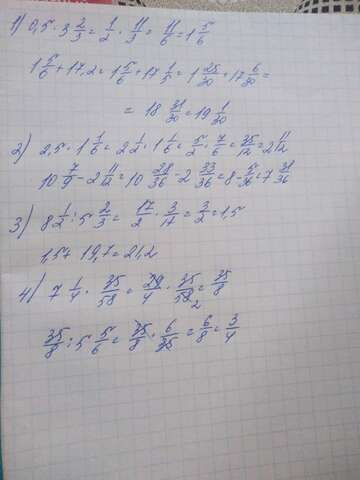 1) 0,5 · 3 2/3 = 1/2 · 11/3 = 11/6 = 1 5/6
1 5/6 + 17,2 = 1 5/6 + 17 1/5 = 1 25/30 + 17 6/30 =
= 18 31/30 = 19 1/30
2) 2,5 · 1 1/6 = 2 1/2 · 1 1/6 = 5/2 · 7/6 = 35/12 = 2 11/12
10 7/9 - 2 11/12 = 10 28/36 - 2 33/36 = 8 - 5/36 = 7 31/36
3) 8 1/2 : 5 2/3 = 17/2 · 3/17 = 3/2 = 1,5
1,5 + 19,7 = 21,2
4) 7 1/4 · 35/58 = 29/4 · 35/58 2 = 35/8
35/8 : 5 5/6 = 35/8 · 6/35 = 6/8 = 3/4